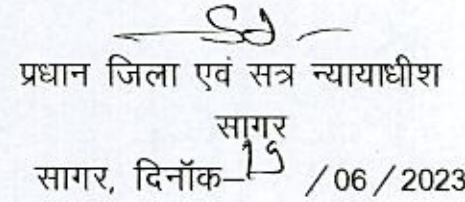 Sd
प्रधान जिला एवं सत्र न्यायाधीश
सागर
सागर, दिनॉक– /06/2023